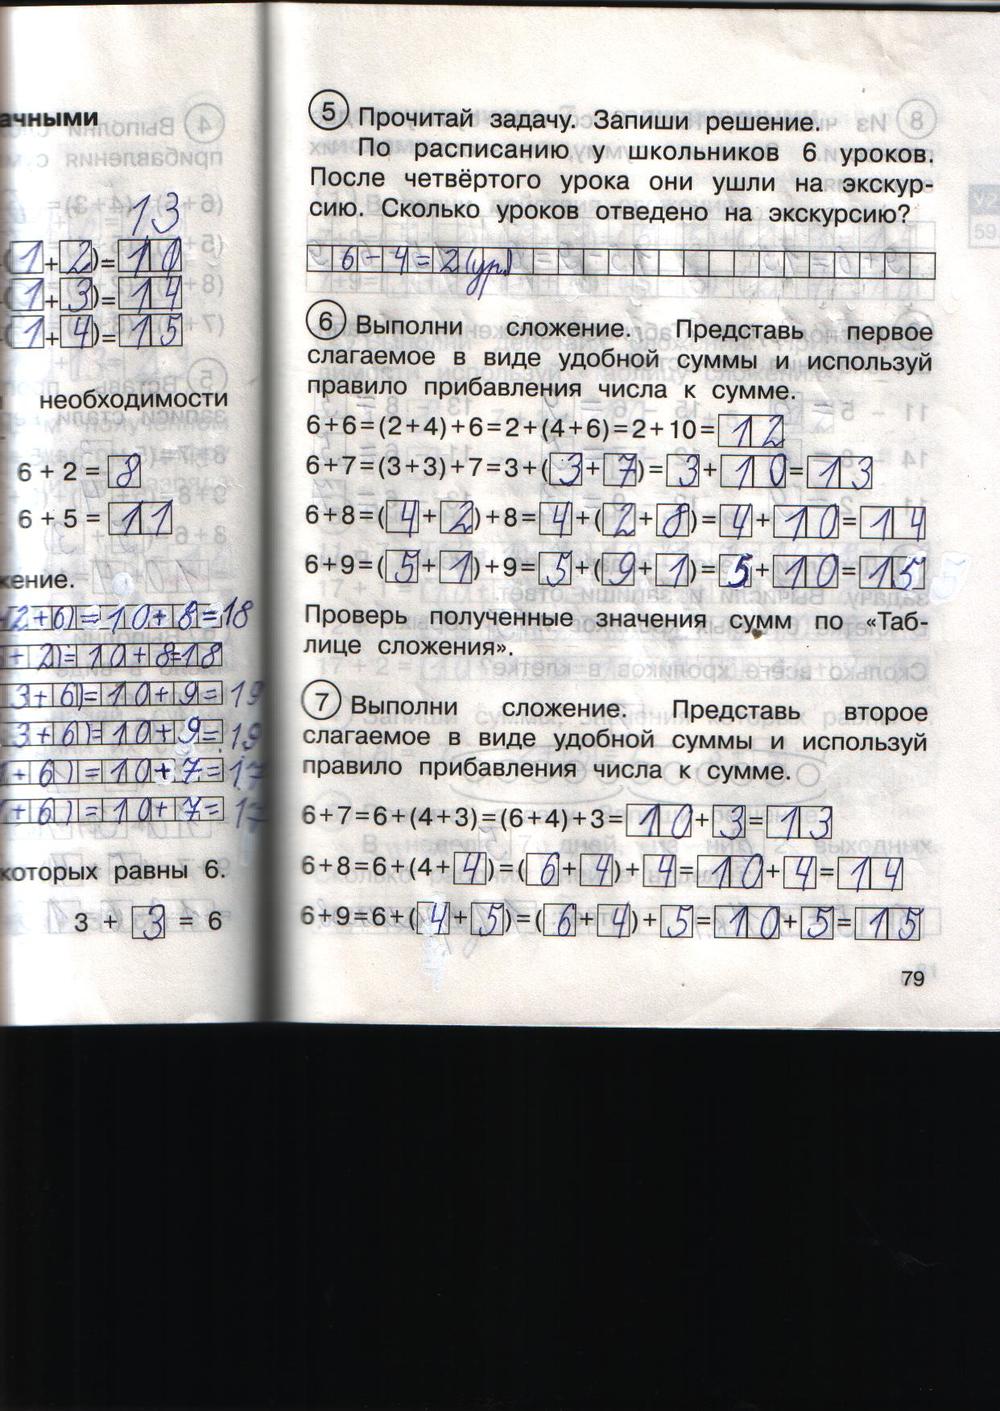 ачными
13
1 + 2)= 10
1 + 3)= 14
1 + 4)= 15
необходимости
6 + 2 = 8
6 + 5 = 11
жение.
2+6)=10+8=18
+ 2)= 10+8=18
3+6)=10+9=19
3+6)=10+9=19
+ 6) = 10+7=17
+ 6) = 10+7=17
которых равны 6.
3 + 3 = 6
5 Прочитай задачу. Запиши решение.
По расписанию у школьников 6 уроков.
После четвёртого урока они ушли на экскур-
сию. Сколько уроков отведено на экскурсию?
6 - 4 = 2 (ур)
6 Выполни сложение. Представь первое
слагаемое в виде удобной суммы и используй
правило прибавления числа к сумме.
6+6=(2+4)+6=2+(4+6)=2+10=12
6+7=(3+3)+7=3+(3+7)=3+10=13
6+8=(4+2)+8=4+(2+8)=4+10=14
6+9=(5+1)+9=5+(9+1)=5+10=15
Проверь полученные значения сумм по «Таб-
лице сложения».
7 Выполни сложение. Представь второе
слагаемое в виде удобной суммы и используй
правило прибавления числа к сумме.
6+7=6+(4+3)=(6+4)+3=10+3=13
6+8=6+(4+4)=(6+4)+4=10+4=14
6+9=6+(4+5)=(6+4)+5=10+5=15
79